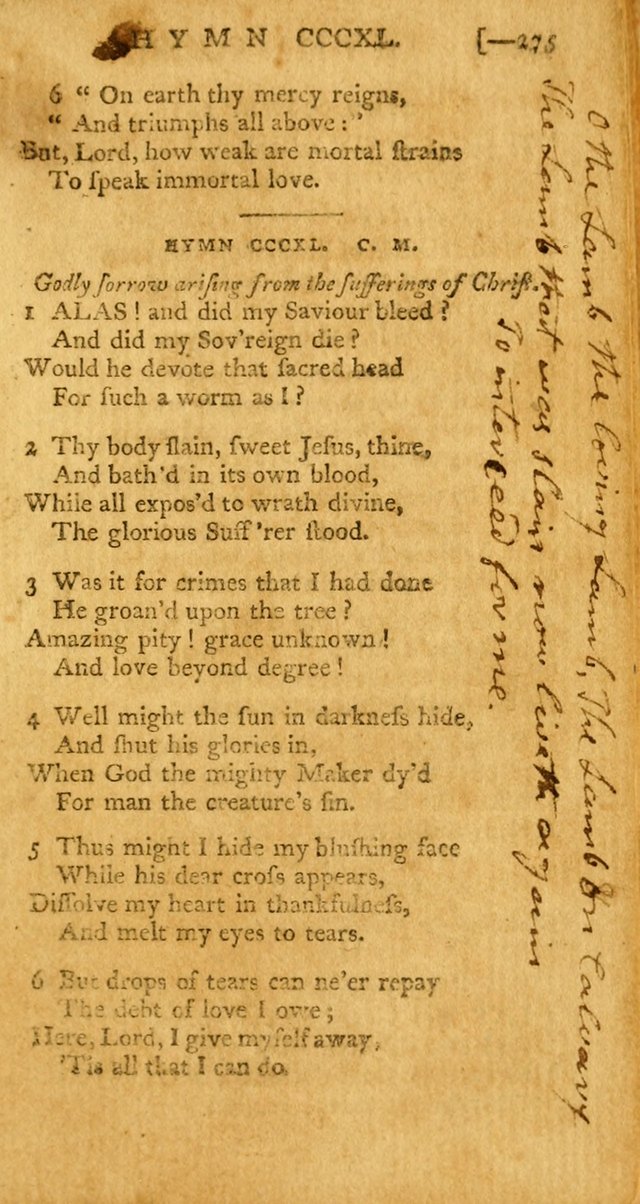 HYMN CCCXL. [—275
6 “ On earth thy mercy reigns,
“ And triumphs all above : ’
But, Lord, how weak are mortal ſtrains
To ſpeak immortal love.
HYMN CCCXL. C. M.
Godly ſorrow ariſing from the ſufferings of Chriſt.
1 ALAS ! and did my Saviour bleed ?
And did my Sov’reign die ?
Would he devote that ſacred head
For ſuch a worm as I ?
2 Thy body ſlain, ſweet Jeſus, thine,
And bath’d in its own blood,
While all expos’d to wrath divine,
The glorious Suff’rer ſtood.
3 Was it for crimes that I had done
He groan’d upon the tree ?
Amazing pity ! grace unknown !
And love beyond degree !
4 Well might the ſun in darkneſs hide,
And ſhut his glories in,
When God the mighty Maker dy’d
For man the creature’s ſin.
5 Thus might I hide my bluſhing face
While his dear croſs appears,
Diſſolve my heart in thankfulneſs,
And melt my eyes to tears.
6 But drops of tears can ne’er repay
The debt of love I owe ;
Here, Lord, I give myſelf away,
’Tis all that I can do.
O the Lamb the loving Lamb, The Lamb on Calvary
The Lamb that was slain now liveth again
To interceed for me.